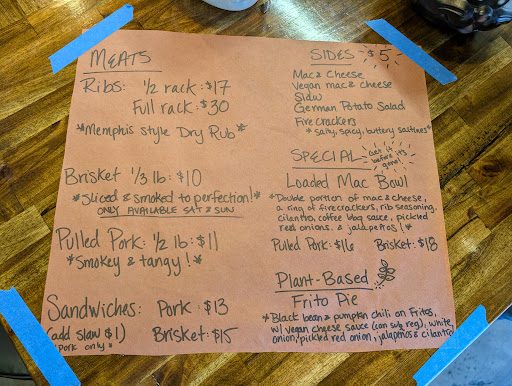 MEATS
Ribs: 1/2 rack: $17
Full rack: $30
*Memphis Style Dry Rub*
Brisket 1/3 lb: $10
*Sliced & smoked to perfection!*
ONLY AVAILABLE SAT & SUN
Pulled Pork: 1/2 lb: $11
*Smokey & tangy!*
Sandwiches: Pork: $13
(add slaw $1) Brisket: $15
*Pork only*
SIDES - $5
Mac & Cheese
Vegan mac & cheese
Slaw
German Potato Salad
Firecrackers
*salty, spicy, buttery saltines*
SPECIAL - Get it before it's gone!
Loaded Mac Bowl
*Double portion of mac & cheese,
a ring of firecrackers, rib seasoning,
cilantro, coffee bbq sauce, pickled
red onions, & jalapeños!*
Pulled Pork: $16 Brisket: $18
Plant-Based
Frito Pie
*Black bean & pumpkin chili on Fritos,
w/ vegan cheese sauce (can sub reg), white
onion, pickled red onion, jalapeños & cilantro